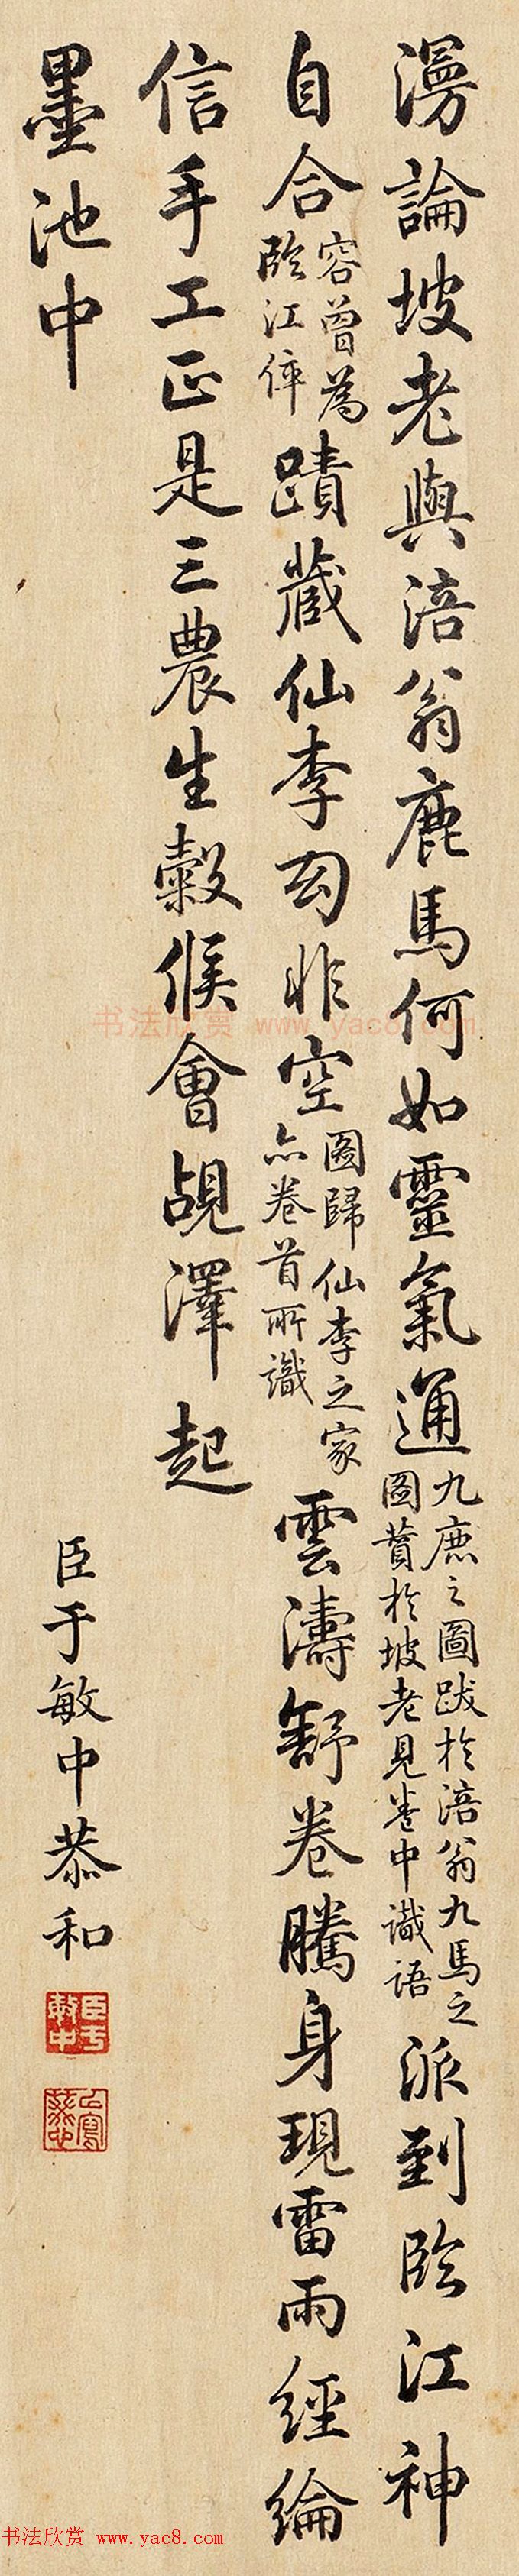 漫論坡老與涪翁鹿馬何如靈氣通九鹿之圖跋於涪翁九馬之圖贊於坡老見卷中識語派到臨江神
自合容曾為臨江倅蹟藏仙李勾非空圖歸仙李之家亦卷首所識雲濤舒卷騰身現雷雨經綸
信手工正是三農生穀候會覘澤起
墨池中
臣于敏中恭和
臣于敏中
书法欣赏 www.yac8.com
书法欣赏 www.yac8.com